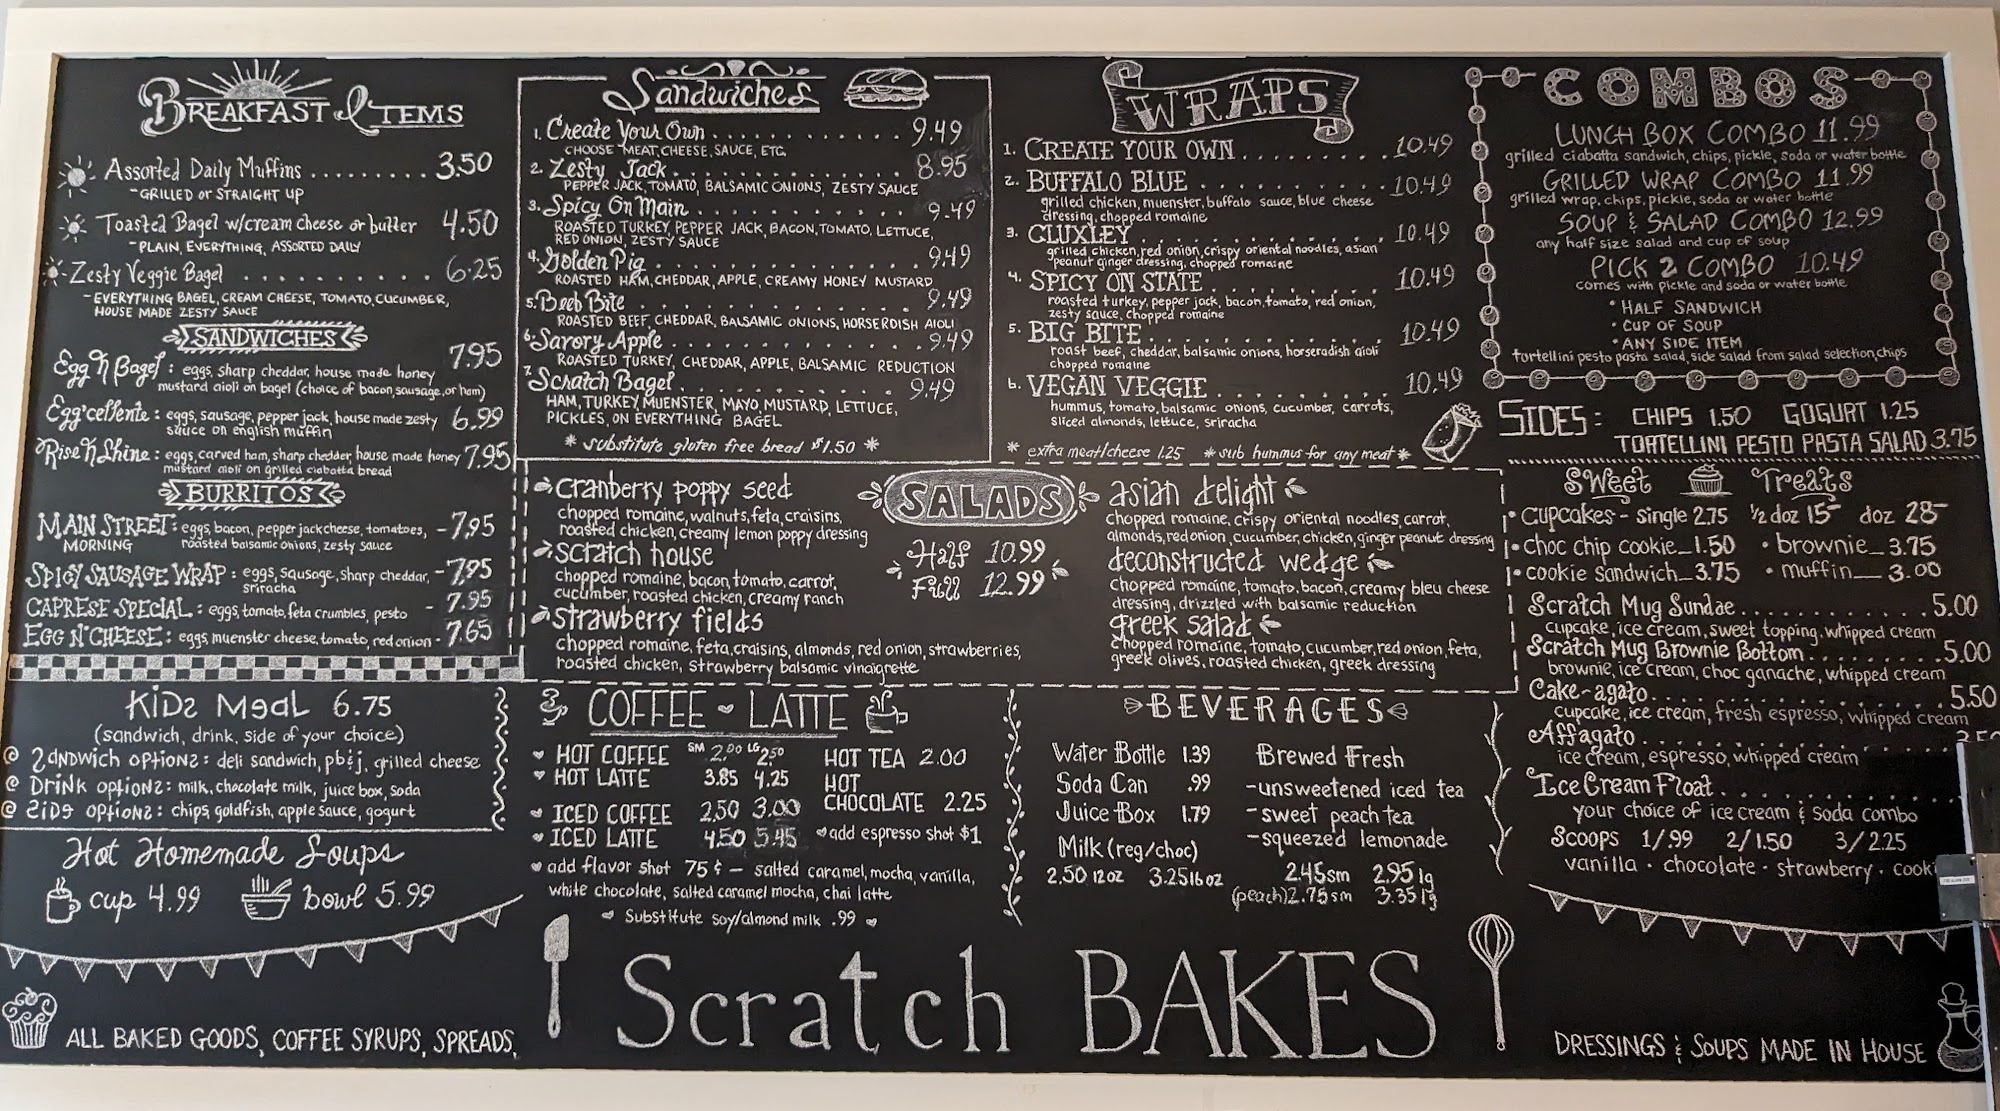 BREAKFAST ITEMS
Assorted Daily Muffins ......... 3.50
-GRILLED or STRAIGHT UP
Toasted Bagel w/cream cheese or butter 4.50
-PLAIN, EVERYTHING, ASSORTED DAILY
Zesty Veggie Bagel .......... 6.25
-EVERYTHING BAGEL, CREAM CHEESE, TOMATO, CUCUMBER,
HOUSE MADE ZESTY SAUCE
SANDWICHES
Egg N Bagel: eggs, sharp cheddar, house made honey 7.95
mustard aioli on bagel (choice of bacon, sausage, or ham)
Egg'cellente: eggs, sausage, pepper jack, house made zesty 6.99
sauce on english muffin
Rise N Shine: eggs, carved ham, sharp chedder, house made honey 7.95
mustard aioli on grilled ciabatta bread
BURRITOS
MAIN STREET: eggs, bacon, pepper jack cheese, tomatoes, -7.95
MORNING roasted balsamic onions, zesty sauce
SPICY SAUSAGE WRAP: eggs, sausage, sharp cheddar, -7.95
sriracha
CAPRESE SPECIAL: eggs, tomato, feta crumbles, pesto - 7.95
EGG N' CHEESE: eggs, muenster cheese, tomato, red onion - 7.65
KIDS MEAL 6.75
(sandwich, drink, side of your choice)
@ SANDWICH OPTIONS: deli sandwich, pb&j, grilled cheese
@ DRINK OPTIONS: milk, chocolate milk, juice box, soda
@ SIDE OPTIONS: chips, goldfish, apple sauce, gogurt
Hot Homemade Soups
cup 4.99 bowl 5.99
ALL BAKED GOODS, COFFEE SYRUPS, SPREADS,
Sandwiches
1. Create Your Own ............ 9.49
CHOOSE MEAT, CHEESE, SAUCE, ETC.
2. Zesty Jack ............ 8.95
PEPPER JACK, TOMATO, BALSAMIC ONIONS, ZESTY SAUCE
3. Spicy On Main ........... 9.49
ROASTED TURKEY, PEPPER JACK, BACON, TOMATO, LETTUCE,
RED ONION, ZESTY SAUCE
4. Golden Pig ............. 9.49
ROASTED HAM, CHEDDAR, APPLE, CREAMY HONEY MUSTARD
5. Beeb Bite ............ 9.49
ROASTED BEEF, CHEDDAR, BALSAMIC ONIONS, HORSERDISH AIOLI
6. Savory Apple ............ 9.49
ROASTED TURKEY, CHEDDAR, APPLE, BALSAMIC REDUCTION
7. Scratch Bagel ............ 9.49
HAM, TURKEY, MUENSTER, MAYO, MUSTARD, LETTUCE,
PICKLES, ON EVERYTHING BAGEL
* substitute gluten free bread $1.50 *
WRAPS
1. CREATE YOUR OWN ......... 10.49
2. BUFFALO BLUE .......... 10.49
grilled chicken, muenster, buffalo sauce, blue cheese
dressing, chopped romaine
3. CLUXLEY ............ 10.49
grilled chicken, red onion, crispy oriental noodles, asian
peanut ginger dressing, chopped romaine
4. SPICY ON STATE .......... 10.49
roasted turkey, pepper jack, bacon, tomato, red onion,
zesty sauce, chopped romaine
5. BIG BITE ............ 10.49
roast beef, cheddar, balsamic onions, horseradish aioli
chopped romaine
6. VEGAN VEGGIE ......... 10.49
hummus, tomato, balsamic onions, cucumber, carrots,
sliced almonds, lettuce, sriracha
* extra meat/cheese 1.25 * sub hummus for any meat *
COMBOS
LUNCH BOX COMBO 11.99
grilled ciabatta sandwich, chips, pickle, soda or water bottle
GRILLED WRAP COMBO 11.99
grilled wrap, chips, pickle, soda or water bottle
SOUP & SALAD COMBO 12.99
any half size salad and cup of soup
PICK 2 COMBO 10.49
comes with pickle and soda or water bottle
• HALF SANDWICH
• CUP OF SOUP
• ANY SIDE ITEM
tortellini pesto pasta salad, side salad from salad selection, chips
SIDES: CHIPS 1.50 GOGURT 1.25
TORTELLINI PESTO PASTA SALAD 3.75
SALADS
Half 10.99
Full 12.99
cranberry poppy seed
chopped romaine, walnuts, feta, craisins,
roasted chicken, creamy lemon poppy dressing
scratch house
chopped romaine, bacon, tomato, carrot,
cucumber, roasted chicken, creamy ranch
strawberry fields
chopped romaine, feta, craisins, almonds, red onion, strawberries,
roasted chicken, strawberry balsamic vinaigrette
asian delight
chopped romaine, crispy oriental noodles, carrot,
almonds, red onion, cucumber, chicken, ginger peanut dressing
deconstructed wedge
chopped romaine, tomato, bacon, creamy bleu cheese
dressing, drizzled with balsamic reduction
greek salad
chopped romaine, tomato, cucumber, red onion, feta,
greek olives, roasted chicken, greek dressing
COFFEE LATTE
HOT COFFEE SM 2.00 LG 2.50
HOT LATTE 3.85 4.25
ICED COFFEE 2.50 3.00
ICED LATTE 4.50 5.45
HOT TEA 2.00
HOT
CHOCOLATE 2.25
add espresso shot $1
add flavor shot 75¢ – salted caramel, mocha, vanilla,
white chocolate, salted caramel mocha, chai latte
Substitute soy/almond milk .99
BEVERAGES
Water Bottle 1.39
Soda Can .99
Juice Box 1.79
Milk (reg/choc)
2.50 12oz 3.25 16oz
Brewed Fresh
-unsweetened iced tea
-sweet peach tea
-squeezed lemonade
2.45 sm 2.95 lg
(peach) 2.75 sm 3.35 lg
Sweet Treats
• cupcakes - single 2.75 ½ doz 15- doz 28-
• choc chip cookie_1.50 • brownie_3.75
• cookie sandwich_3.75 • muffin_3.00
Scratch Mug Sundae ............ 5.00
cupcake, ice cream, sweet topping, whipped cream
Scratch Mug Brownie Bottom ......... 5.00
brownie, ice cream, choc ganache, whipped cream
Cake-agato ............ 5.50
cupcake, ice cream, fresh espresso, whipped cream
Affagato ............
ice cream, espresso, whipped cream
Ice Cream Float ............
your choice of ice cream & soda combo
SCOOPS 1/.99 2/1.50 3/2.25
vanilla • chocolate • strawberry •
Scratch BAKES
DRESSINGS & SOUPS MADE IN HOUSE